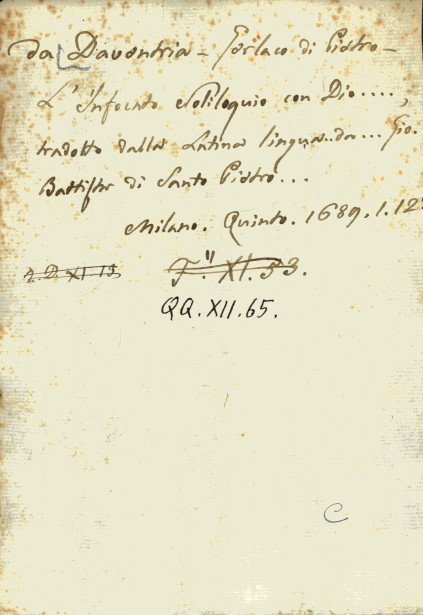 da Davontria - Gerlaco di Pietro -
L'Infocato Soliloquio con Dio....,
tradotto dalla Latina lingua..da... Gio.
Battista di Santo Pietro...
Milano. Quinto. 1689. 1. 12
2. D. XI 13 F." XI. 53.
QQ. XII. 65.
C